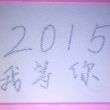 2015
我等你